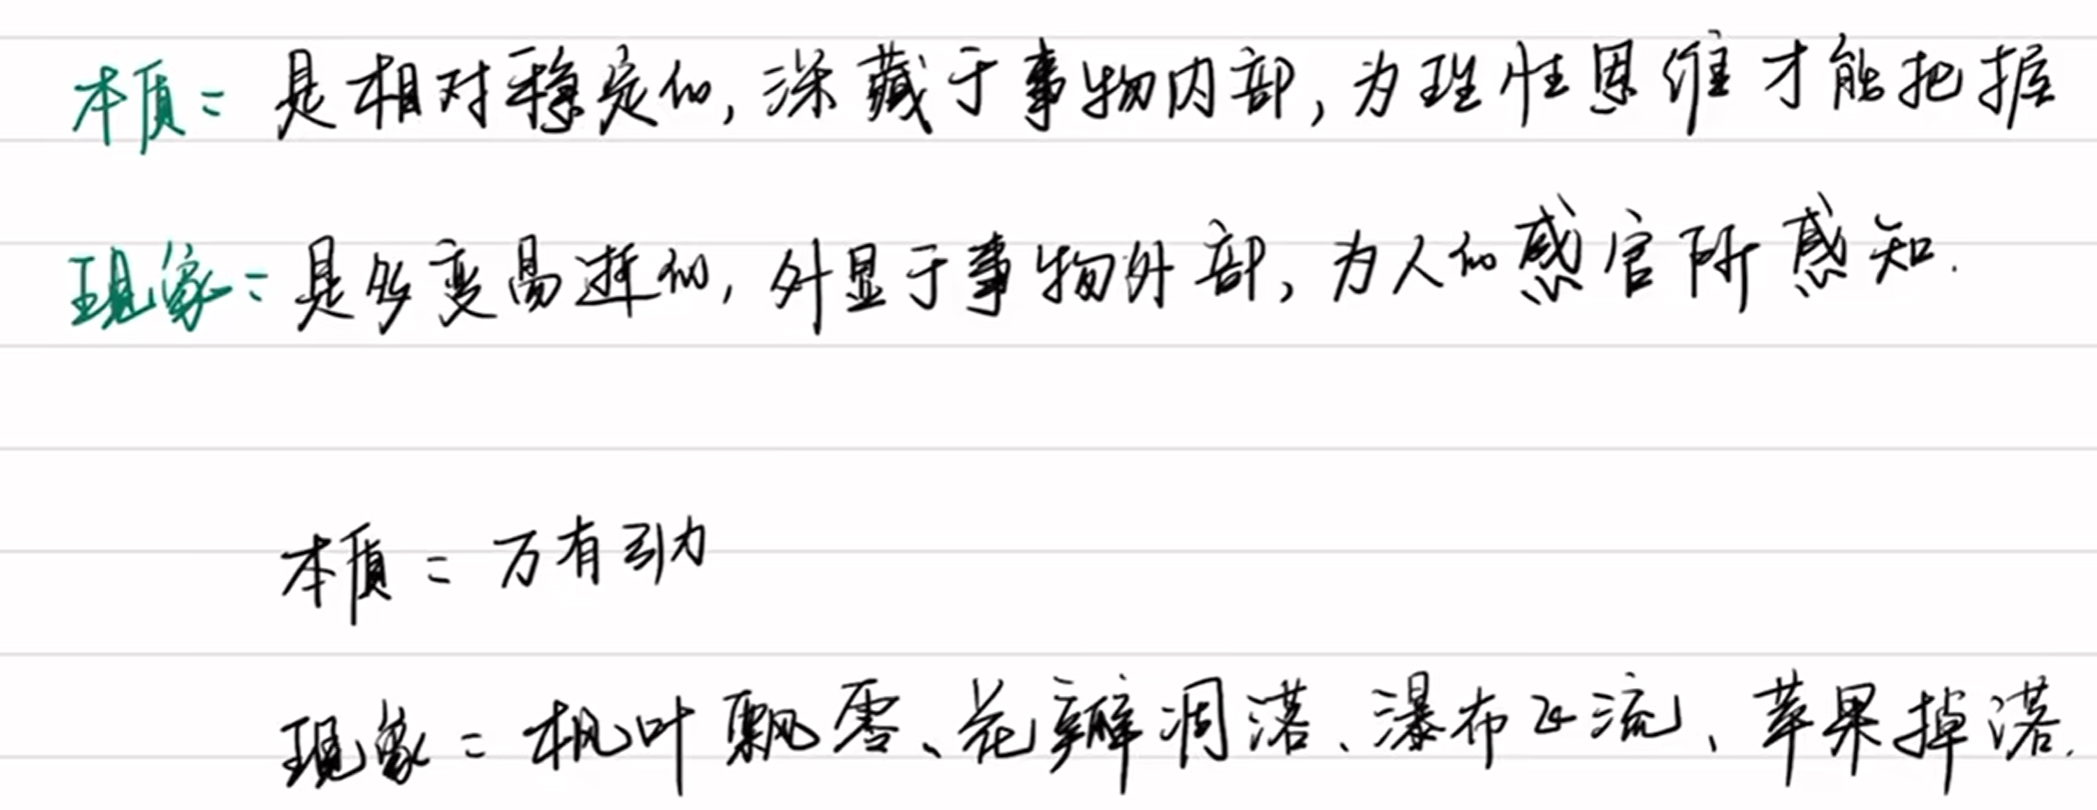 本质：是相对稳定的，深藏于事物内部，为理性思维才能把握
现象：是多变易逝的，外显于事物外部，为人的感官所感知.
本质：万有引力
现象：枫叶飘零、花瓣凋落、瀑布正流、苹果掉落.